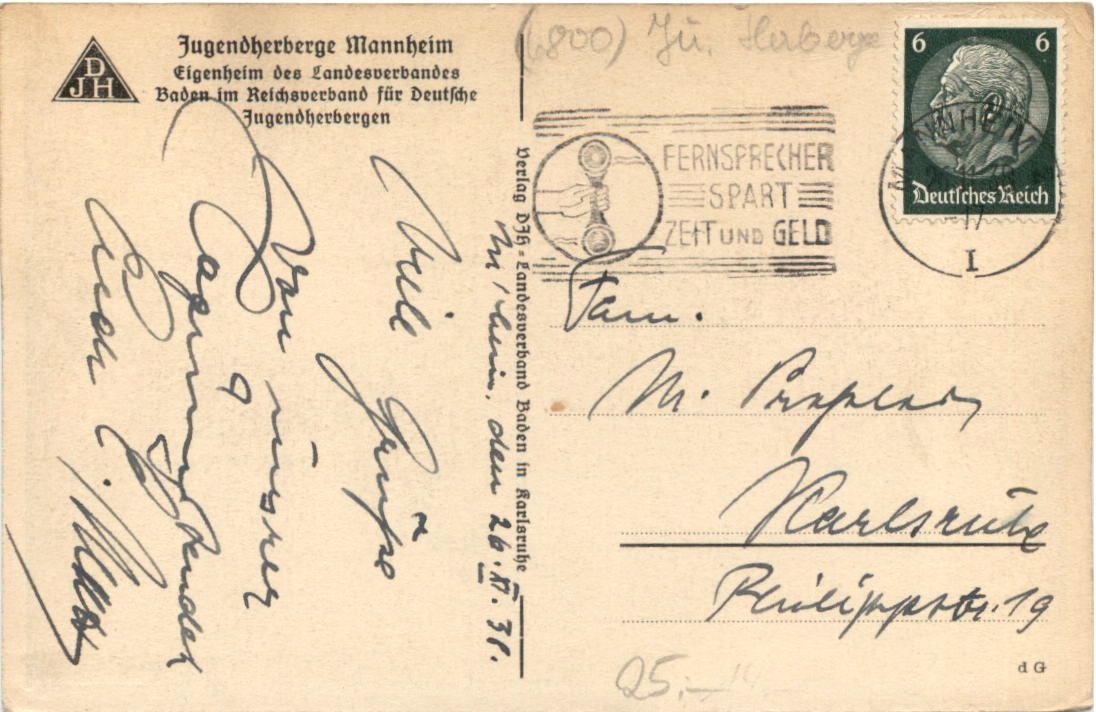 DJH
Jugendherberge Mannheim
Eigenheim des Landesverbandes
Baden im Reichsverband für Deutsche
Jugendherbergen
(6800) Ju. Herberge
6 6
Deutsches Reich
MANNHEIM
17
I
FERNSPRECHER
SPART
ZEIT UND GELD
Verlag DJH-Landesverband Baden in Karlsruhe
M'heim, den 26.XI.38.
Viele Grüße
von unserer
Tagung sendet
Euch
Fam.
M.
Karlsruhe
Philippstr. 19
dG
25,-